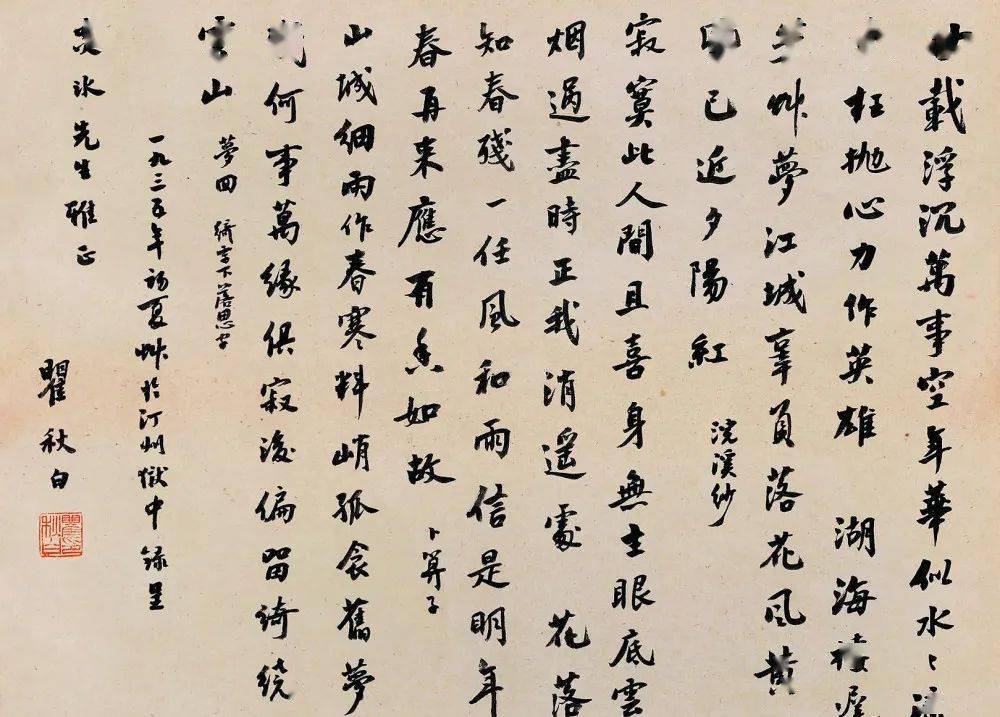 廿載浮沉萬事空年華似水〻
枉拋心力作英雄　湖海
艸夢江城辜負落花風黃
已近夕陽紅　浣溪紗
寂寞此人間且喜身無主眼底雲
烟過盡時正我消遥處　花落
知春殘一任風和雨信是明年
春再來應有香如故　卜算子
山城細雨作春寒料峭孤衾舊夢
何事萬緣俱寂後偏留綺繞
雲山　夢回　綺字下落思字
一九三五年初夏艸於汀州獄中錄呈
冰先生雅正
瞿秋白